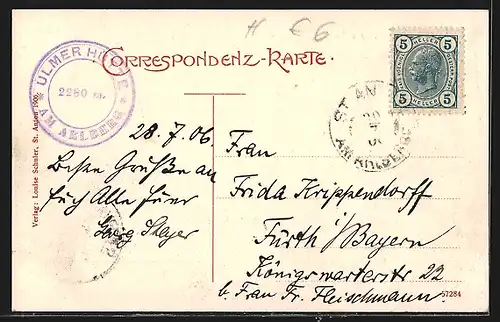 H € 6
CORRESPONDENZ-KARTE.
ULMER HÜTTE
2280 m.
AM ARLBERG
5 HELLER 5
ST. AN
AM ARLBERG
28.7.06.
Beste Grüße an
Euch Alle Euer
Georg Mayer
Frau
Frida Krippendorff
Fürth / Bayern
Königswarterstr 22
b. Frau Fr. Fleischmann.
57284
Verlag: Louise Schuler, St. Anton